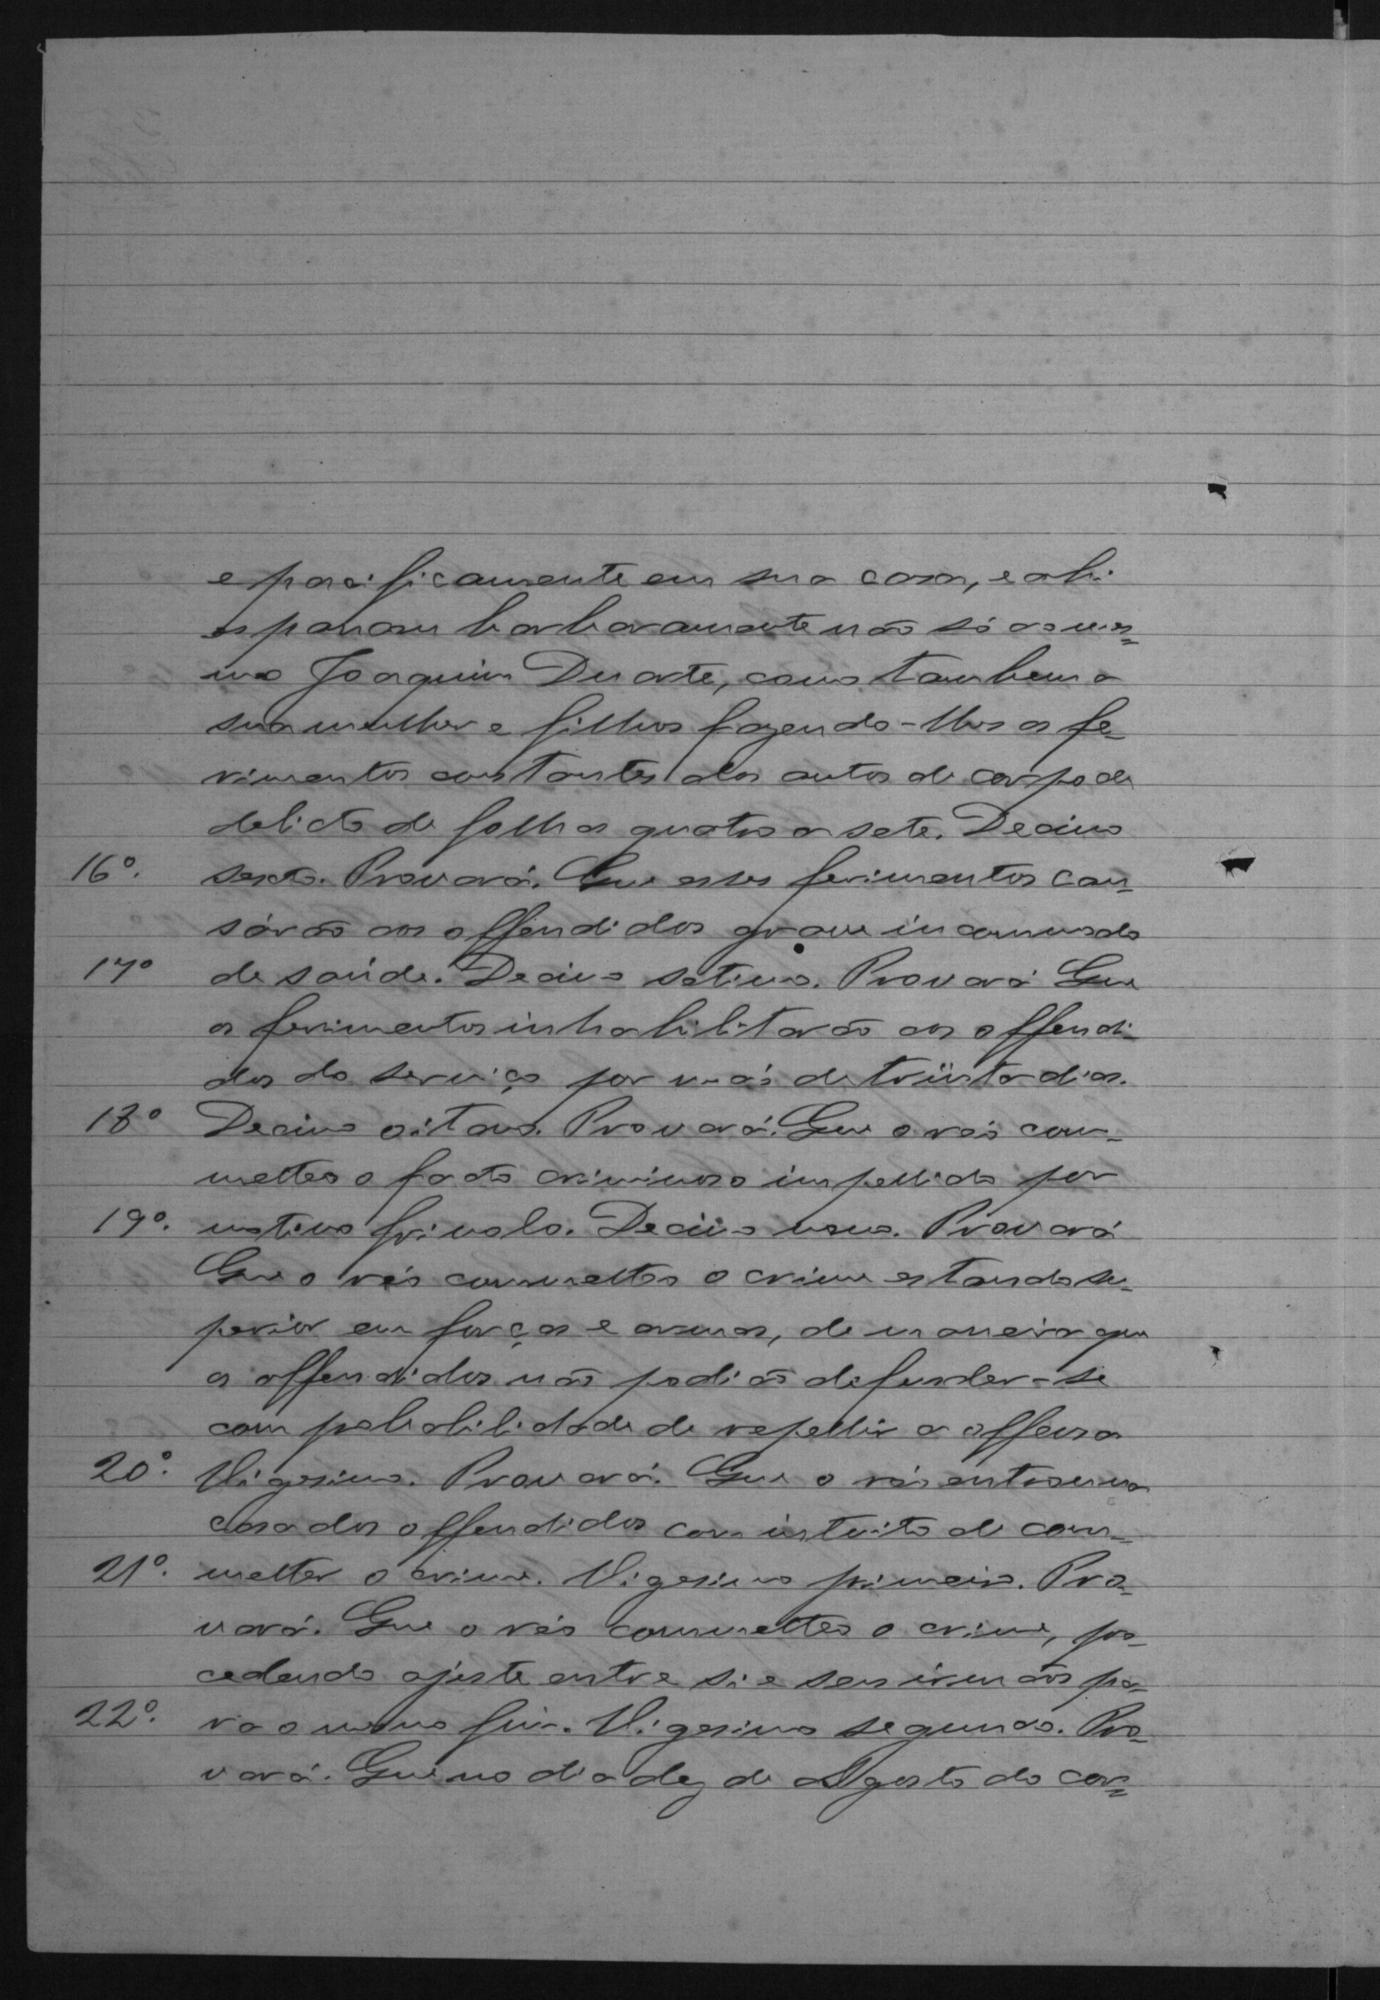 e pacificamente em sua casa, e ahi
espancou barbaramente não só ao mes=
mo Joaquim Duarte, como tambem a
sua mulher e filhos fazendo-lhes os fe-
rimentos constantes dos autos de corpo de
delicto de folhas quatro a sete. Decimo
16º. sexto. Provará. Que esses ferimentos cau-
sárão aos offendidos grave incommodo
17º de saúde. Decimo setimo. Provará Que
os ferimentos inhabilitarão aos offendi-
dos do serviço por mais de triinta dias.
18º Decimo oitavo. Provará. Que o réo com-
metteo o facto criminoso impellido por
19º. motivo frivolo. Decimo nono. Provará
Que o réo commetteo o crime estando su-
perior em forças e armas, de maneira que
os offendidos não podião defender-se
com probabilidade de repellir a offensa
20º. Vigesimo. Provará. Que o réo entrou na
casa dos offendidos com intuito de com-
21º. metter o crime. Vigesimo primeiro. Pro-
vará. Que o réo commetteo o crime, pro-
cedendo ajuste entre si e seus irmãos pa-
22º. ra o mesmo fim. Vigesimo segundo. Pro-
vará. Que no dia dez de Agosto do cor=